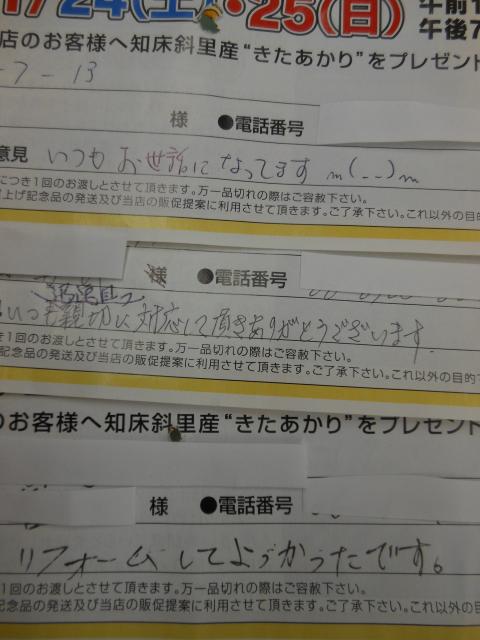 1/24(土)・25(日)
午前1
午後7
店のお客様へ知床斜里産“きたあかり”をプレゼント
-7-13
様 ●電話番号
意見 いつもお世話になってます m(..)m
につき1回のお渡しとさせて頂きます。万一品切れの際はご容赦下さい。
上げ記念品の発送及び当店の販促提案に利用させて頂きます。ご了承下さい。これ以外の目的
様 ●電話番号
いつも親切に対応して頂きありがとうございます。
き1回のお渡しとさせて頂きます。万一品切れの際はご容赦下さい。
記念品の発送及び当店の販促提案に利用させて頂きます。ご了承下さい。これ以外の目的で
のお客様へ知床斜里産“きたあかり”をプレゼント
様 ●電話番号
リフォームしてよかったです。
1回のお渡しとさせて頂きます。万一品切れの際はご容赦下さい。
記念品の発送及び当店の販促提案に利用させて頂きます。ご了承下さい。これ以外の目的